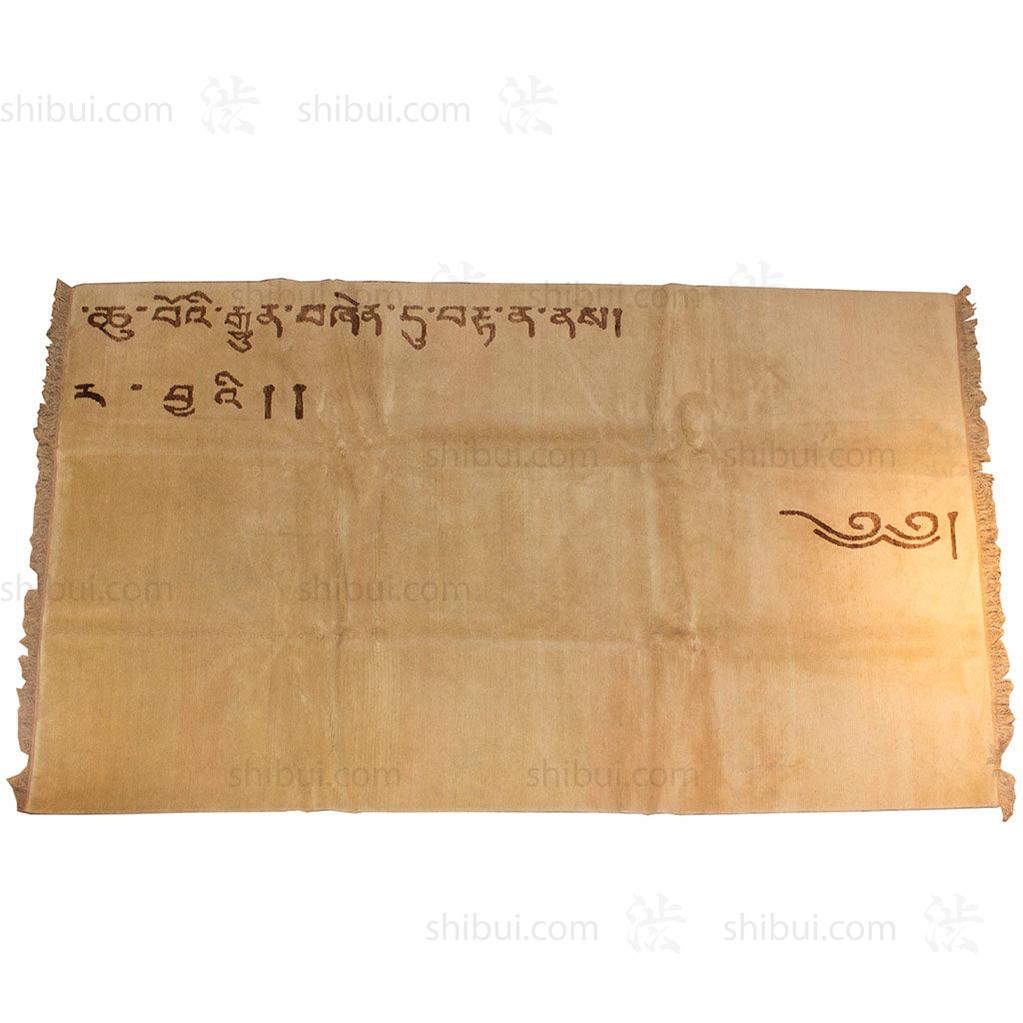 shibui.com 渋 shibui.com 渋
་ཆུ་བོའི་རྒྱུན་བཞེན་དུ་བརྟ་ན་ནས།
ར ་ བྱ འི །།
shibui.com shibui.com
༄༅།
shibui.com shibui.com
shibui.com shibui.com
shibui.com 渋 shibui.com 渋